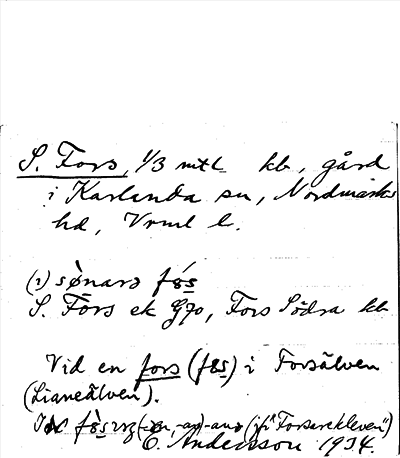 S. Fors, 1/3 mtl kb, gård
i Karlanda sn, Nordmarks
hd, Vrml l.
(1) sønarə føs
S. Fors ek G70, Fors Södra kb
Vid en fors (føs) i Forsälven
(Lianeälven).
"Forserekleven")
E. Andersson 1934.